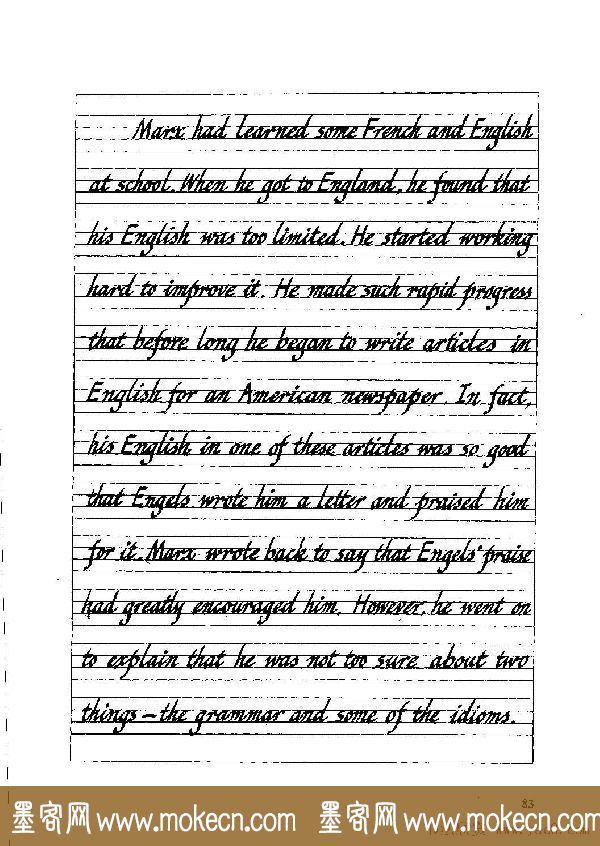 Marx had learned some French and English
at school. When he got to England, he found that
his English was too limited. He started working
hard to improve it. He made such rapid progress
that before long he began to write articles in
English for an American newspaper. In fact,
his English in one of these articles was so good
that Engels wrote him a letter and praised him
for it. Marx wrote back to say that Engels' praise
had greatly encouraged him. However, he went on
to explain that he was not too sure about two
things – the grammar and some of the idioms.
83
墨客网 www.mokecn.com 墨客网 www.mokecn.com